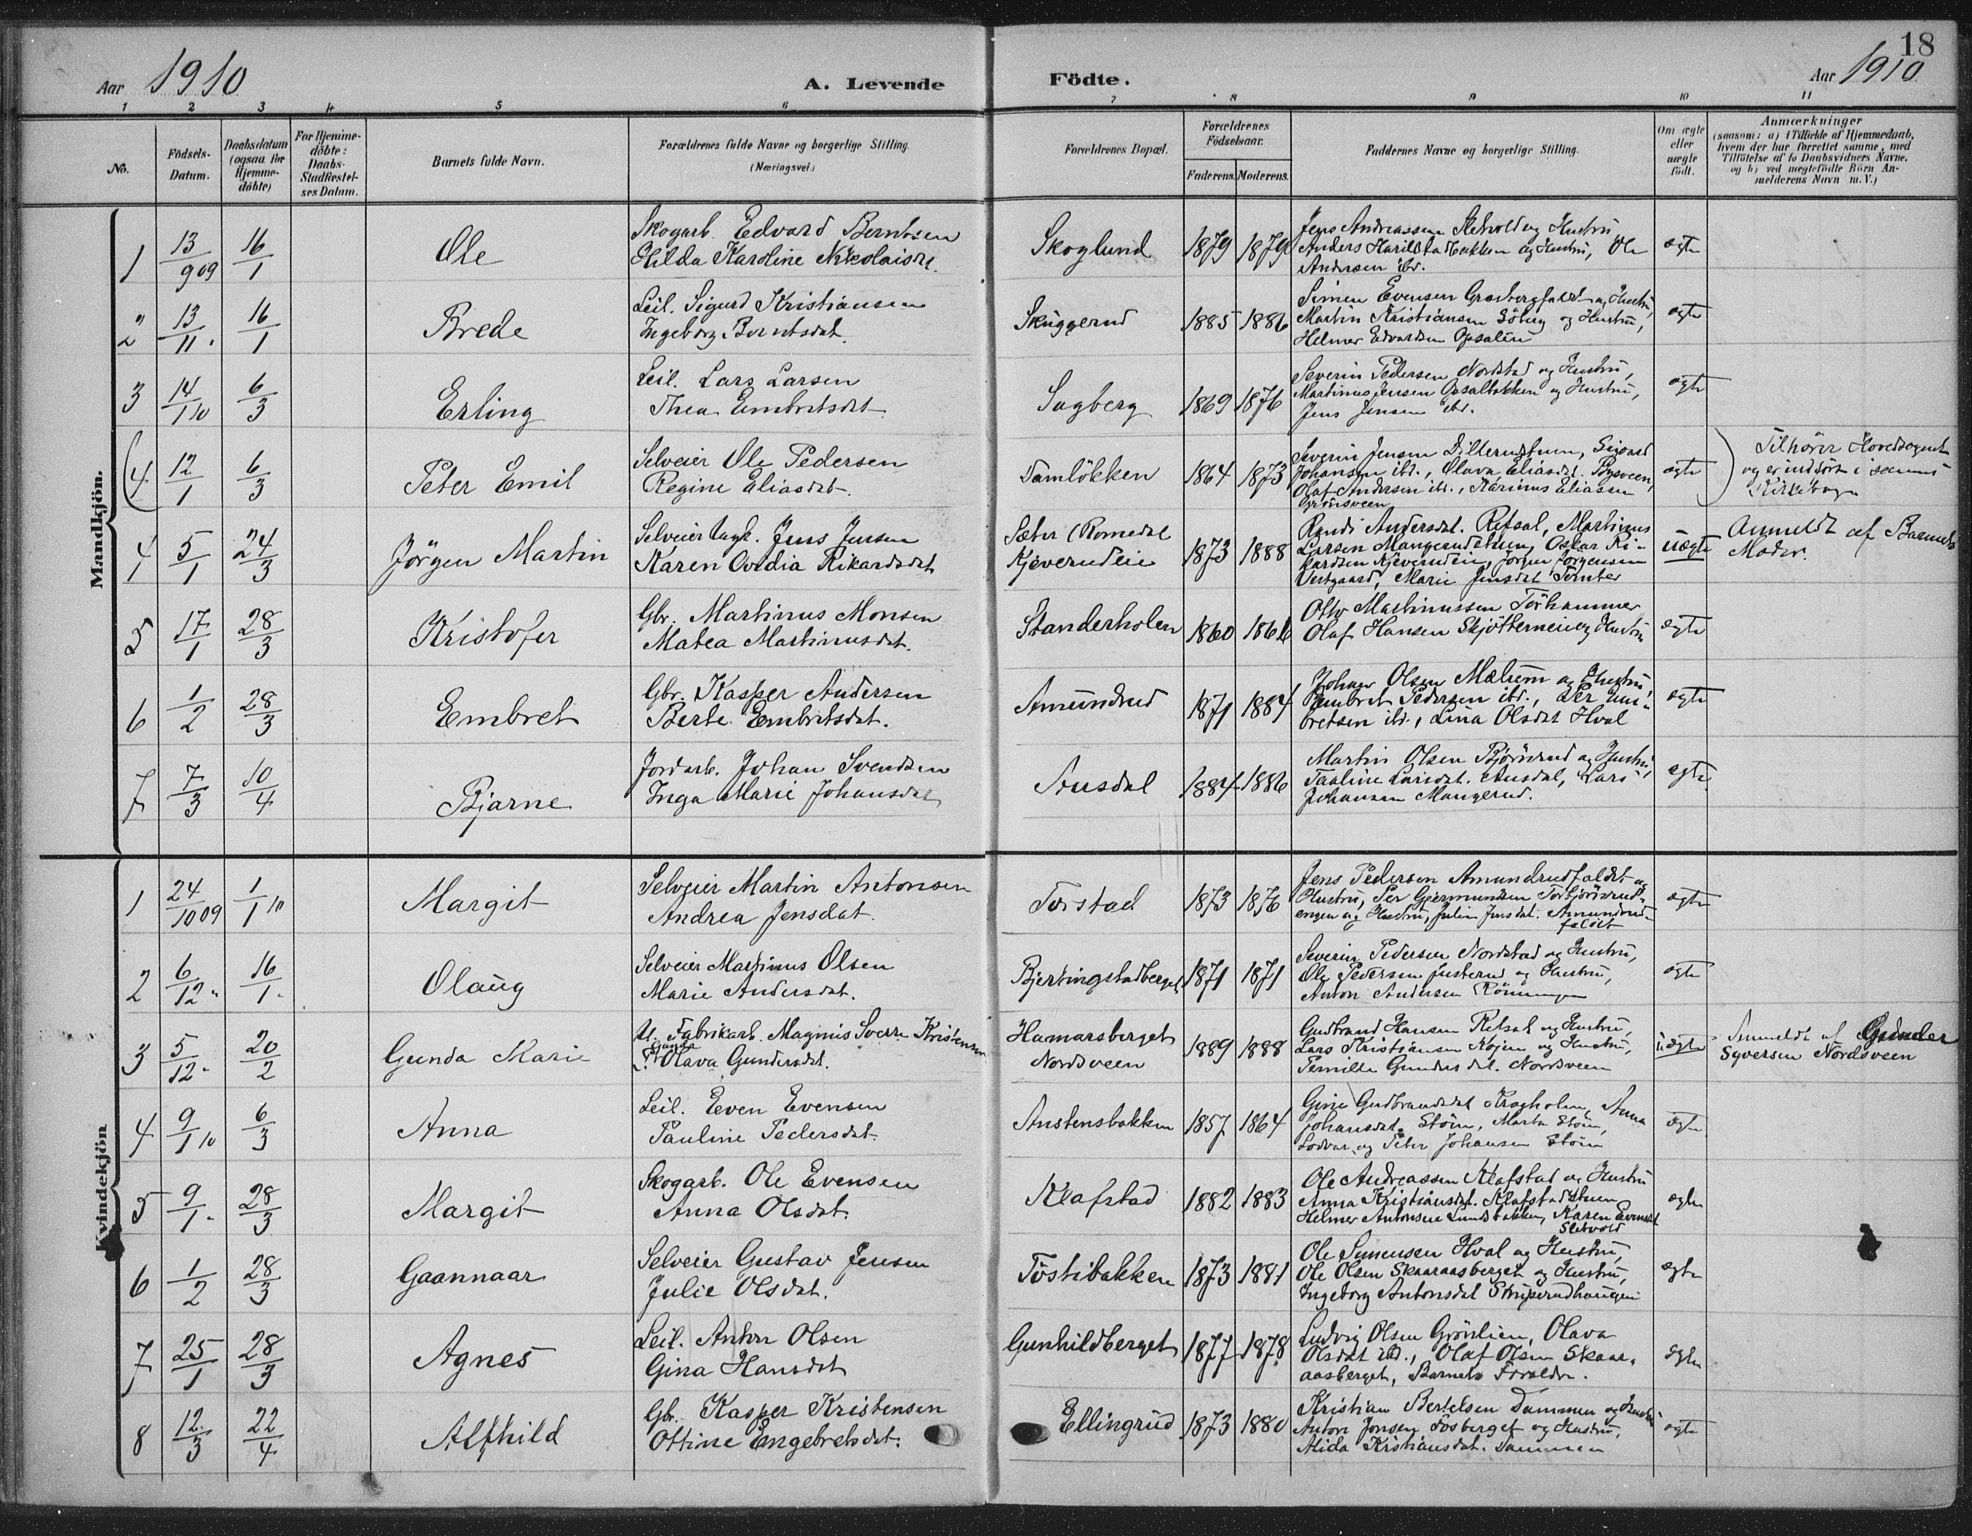 18
Aar 1910 A. Levende Födte. Aar 1910
1 2 3 4 5 6 7 8 9 10 11
No.
Födsels-Datum.
Daabsdatum (ogsaa for Hjemmedöbte)
For Hjemmedöbte: Daabs-Stadfæstelses Datum.
Barnets fulde Navn.
Forældrenes fulde Navne og borgerlige Stilling.
(Næringsvei.)
Forældrenes Bopæl.
Forældrenes Födselsaar.
Faderens. Moderens.
Faddernes Navne og borgerlige Stilling.
Om ægte eller uægte födt.
Anmærkninger
(saasom: a) i Tilfælde af Hjemmedaab,
hvem der har forrettet samme, med
Tilföielse af to Daabsvidners Navne,
og b) ved uægtefödte Börn An-
melderens Navn m. V.)
Mandkjön.
1 13/9 09 16/1 Ole
Skogarb. Edvard Berntsen
Hilda Karoline Nikolaisdt.
Skoglund 1879 1879
Jens Andreassen Sletvold og Hustru
Anders Harildstadbakken og Hustru, Ole
Andersen ibd.
ægte
2 13/11 16/1 Brede
Leil. Sigurd Kristiansen
Ingeborg Berntsdat.
Skuggerud 1885 1886
Simen Evensen Grasbergfaldet og Hustru,
Martin Kristiansen Söberg og Hustru,
Helmer Edvardsen Opsalen
ægte
3 14/1 10 6/3 Erling
Leil. Lars Larsen
Thea Embretsdat
Sagberg 1869 1876
Severin Pedersen Nordstad og Hustru,
Martinus Jensen Opsalbakken og Hustru,
Jens Jensen ibd.
ægte
(4 12/1 6/3 Peter Emil
Selveier Ole Pedersen
Regine Eliasdat.
Damlökken 1864 1873
Severin Jensen Dilterudstuen, Sigvard
Johansen ibd., Olava Eliasdat. Bysveen,
Olaf Andersen ibd., Karinius Eliassen
Grönsveen
ægte
Tilhörer Hovedsognet
og er indfört i dennes
Kirkebog
4 5/1 24/3 Jörgen Martin
Selveier Ugk. Jens Jensen
Karen Ovidia Rikardsdat
Sæter (Romedal
Kjeverudeie 1873 1888
Randi Andersdat. Retsal, Martinus
Larsen Mangerudstuen, Oskar Ri-
kardsen Kjeverudeie, Jörgen Jörgensen
Vestgaard, Marie Jensdat Tomter
uægte
Anmeldt af Barnets
Moder.
5 17/1 28/3 Kristofer
Gbr. Martinus Monsen
Matea Martinusdat.
Standerholen 1860 1866
Otto Martinussen Torhammer
Olaf Hansen Skjöttemeie og Hustru
ægte
6 1/2 28/3 Embret
Gbr. Kasper Andersen
Berte Embretsdat.
Amundrud 1871 1884
Johan Olsen Mælum og Hustru,
Embret Pedersen ibd., Per Em-
bretsen ibd., Lina Olsdat Hval
ægte
7 7/3 10/4 Bjarne
Jordarb. Johan Svendsen
Inga Marie Johansdat
Ausdal 1884 1886
Martin Olsen Björnsrud og Hustru,
Pauline Larsdat. Ausdal, Lars
Johansen Mangerud.
ægte
Kvindekjön
1 24/10 09 1/1 10 Margit
Selveier Martin Antonsen
Andrea Jensdat.
Torstad 1873 1876
Jens Pedersen Amundrudfaldet og
Hustru, Per Gjermundsen Torbjörsrud-
engen og Hustru, Julie Jensdat. Amundrud-
faldet
ægte
2 6/12 16/1 Olaug
Selveier Martinus Olsen
Marie Andersdat.
Bjerkingstadberget 1871 1871
Severin Pedersen Nordstad og Hustru,
Ole Pedersen Justerud og Hustru,
Anton Andersen Rönningen
ægte
3 5/12 20/2 Gunda Marie
U. Fabrikarb. Magnus Sverre Kristensen
P. Gunda Olava Gundersdat.
Hamarsberget
Nordsveen 1889 1888
Gudbrand Hansen Retsal og Hustru,
Lars Kristiansen Kojen og Hustru,
Pernille Gundersdat. Nordsveen
uægte
Anmeldt af Gunder
Syversen Nordsveen
4 9/1 10 6/3 Anna
Leil. Even Evensen
Pauline Pedersdat
Austensbakken 1857 1864
Gina Gudbrandsdat Krogholen, Anna
Johansdat. Stöen, Marta Stöen,
Lodvar og Peter Johansen Stöen
ægte
5 9/1 28/3 Margit
Skogarb. Ole Evensen
Anna Olsdat.
Klafstad 1882 1883
Ole Andreassen Klafstad og Hustru
Anna Kristiansdat. Klafstadstuen
Helmer Antonsen Lundsbakken, Karen Evensdat
Sletvold
ægte
6 1/2 28/3 Gaannaar
Selveier Gustav Jensen
Julie Olsdat.
Tostibakken 1873 1881
Ole Simensen Hval og Hustru,
Ole Olsen Skaaraasberget og Hustru,
Ingeborg Antonsdat Striperudhaugen
ægte
7 25/1 28/3 Agnes
Leil. Anton Olsen
Gina Hansdat
Gunhildberget 1877 1878
Ludvig Olsen Grönlien, Olava
Olsdat ibd., Olaf Olsen Skaar-
aasberget, Barnets Forældre.
ægte
8 12/3 22/4 Alfhild
Gbr. Kasper Kristensen
Ottine Engebretsdat.
Ellingrud 1873 1880
Kristian Bertelsen Dammen og Hustru
Anton Jonsen Fosberget og Hustru,
Alida Kristiansdat. Dammen
ægte